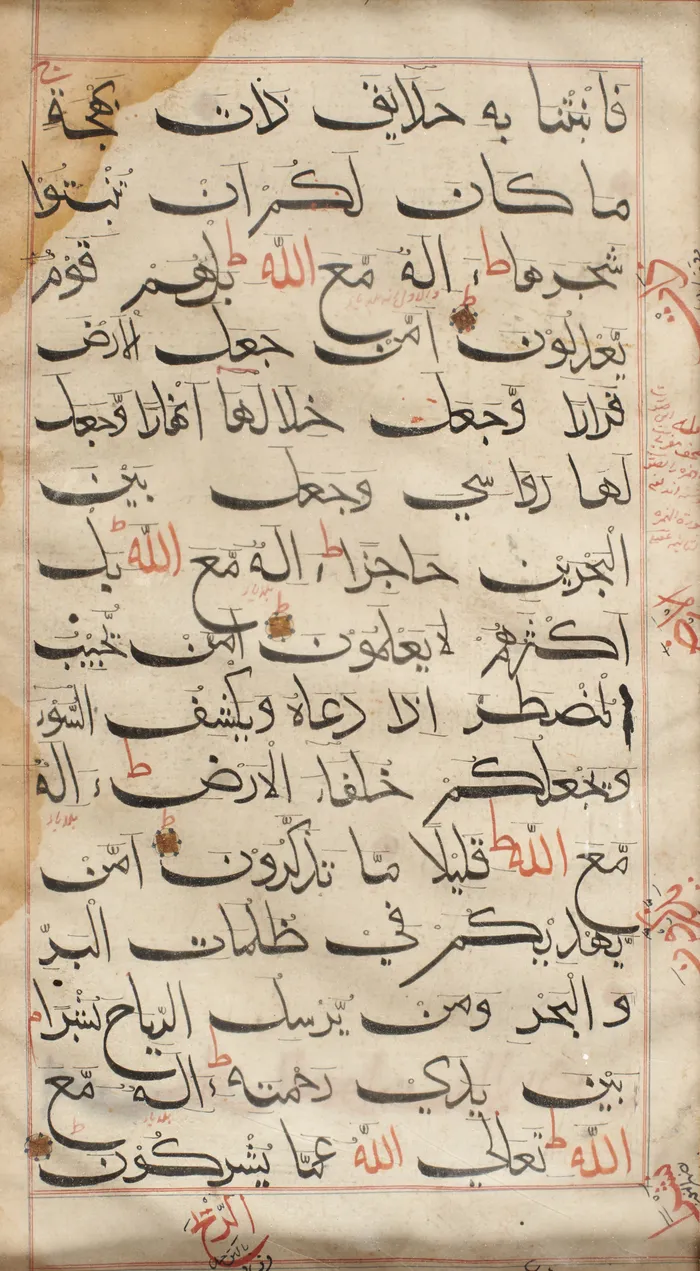 فانبتنا به حدايق ذات بهجة
ما كان لكم ان تنبتوا
شجرها ط ءاله مّع الله ط بل هم قوم
يّعدلون ط امّن جعل الارض
قرارا وّجعل خلالها انهارا وّجعل
لها رواسي وجعل بين
البحرين حاجزا ط ءاله مّع الله ط بل
اكثرهم لا يعلمون ط امّن يّجيب
المضطر اذا دعاه ويكشف السّوء
ويجعلكم خلفاء الارض ط ءاله
مّع الله ط قليلا مّا تذكّرون ط امّن
يّهديكم في ظلمات البرّ
و البحر ومن يّرسل الرّياح بشرا
بين يدي رحمته ط ءاله مّع
الله ط تعالي الله عمّا يشركون ط